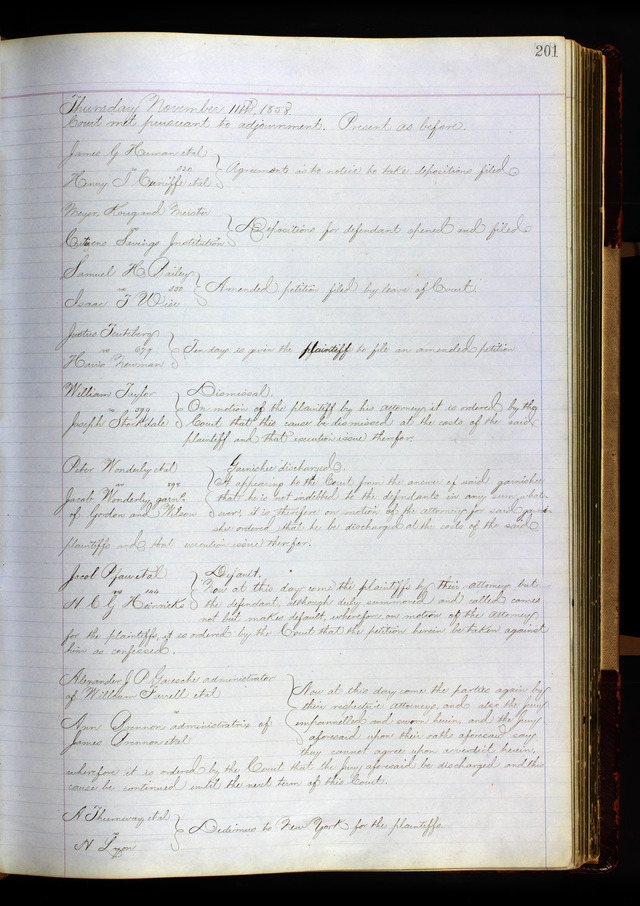 201
Thursday November 11th, 1858.
Court met pursuant to adjournment. Present as before.
James G Heman etal
vs 520
Henry T Cuniffe etal
Agreement as to notice to take depositions filed.
Meyer, Krug and Meister
vs
Citizens Savings Institution
Depositions for defendant opened and filed.
Samuel H. Bailey
vs 550
Isaac T Wise
Amended petition filed by leave of Court.
vs 679
Harris Newman
Ten days is given the plaintiff to file an amended petition
William Taylor
vs 299
Joseph Stockdale
Dismissal.
On motion of the plaintiff by his attorney it is ordered by the
Court that this cause be dismissed at the costs of the said
plaintiff and that execution issue therefor.
Peter Wonderly etal
vs
Jacob Wonderly garne
of Gordon and Wilson
Garnishee discharged.
It appearing to the Court from the answer of said garnishee
that he is not indebted to the defendants in any sum what-
ever, it is therefore on motion of the attorney for said garni-
shee ordered that he be discharged at the costs of the said
plaintiffs and that execution issue therefor.
Jacob Pfau etal
vs 144
H C G Heinricks
Default.
Now at this day come the plaintiffs by their attorney but
the defendant, although duly summoned and called comes
not but makes default, wherefore, on motion of the attorney
for the plaintiffs, it is ordered by the Court that the petition herein be taken against
him as confessed.
Alexander J P Garesche administrator
of William Farrell etal
vs
Ann administratrix of
James etal
Now at this day come the parties again by
their respective attorneys, and also the jury
empannelled and sworn herein, and the jury
aforesaid upon their oaths aforesaid say
they cannot agree upon a verdict herein,
wherefore it is ordered by the Court that the jury aforesaid be discharged and this
cause be continued until the next term of this Court.
N Thurnway etal
vs
N Lyon
Dedimus to New York for the plaintiffs.